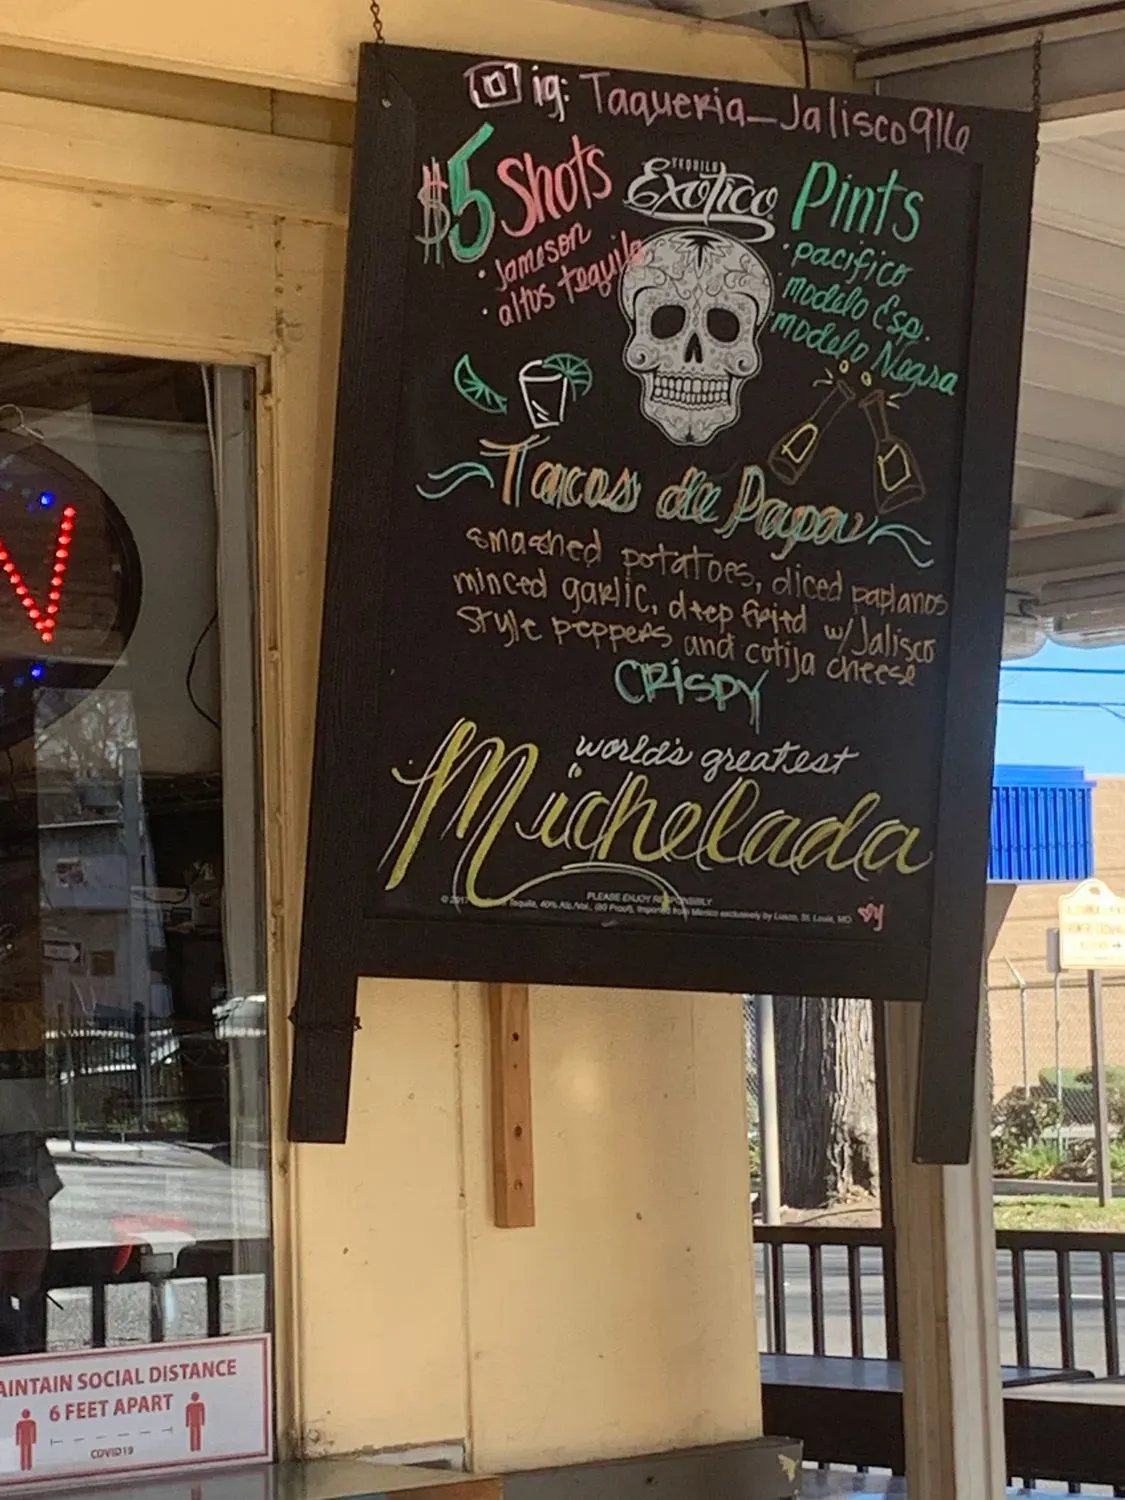 ig: Taqueria_Jalisco916
$5 Shots
• Jameson
• altos tequila
TEQUILA
Exotico
Pints
• pacifico
• modelo Esp.
• modelo Negra
Tacos de Papa
smashed potatoes, diced paplanos
minced garlic, deep fried w/Jalisco
style peppers and cotija cheese
CRISPY
world's greatest
Michelada
PLEASE ENJOY RESPONSIBLY
© 2017 Tequila, 40% Alc./Vol., (80 Proof), Imported from Mexico exclusively by Luxco, St. Louis, MO
AINTAIN SOCIAL DISTANCE
6 FEET APART
COVID19